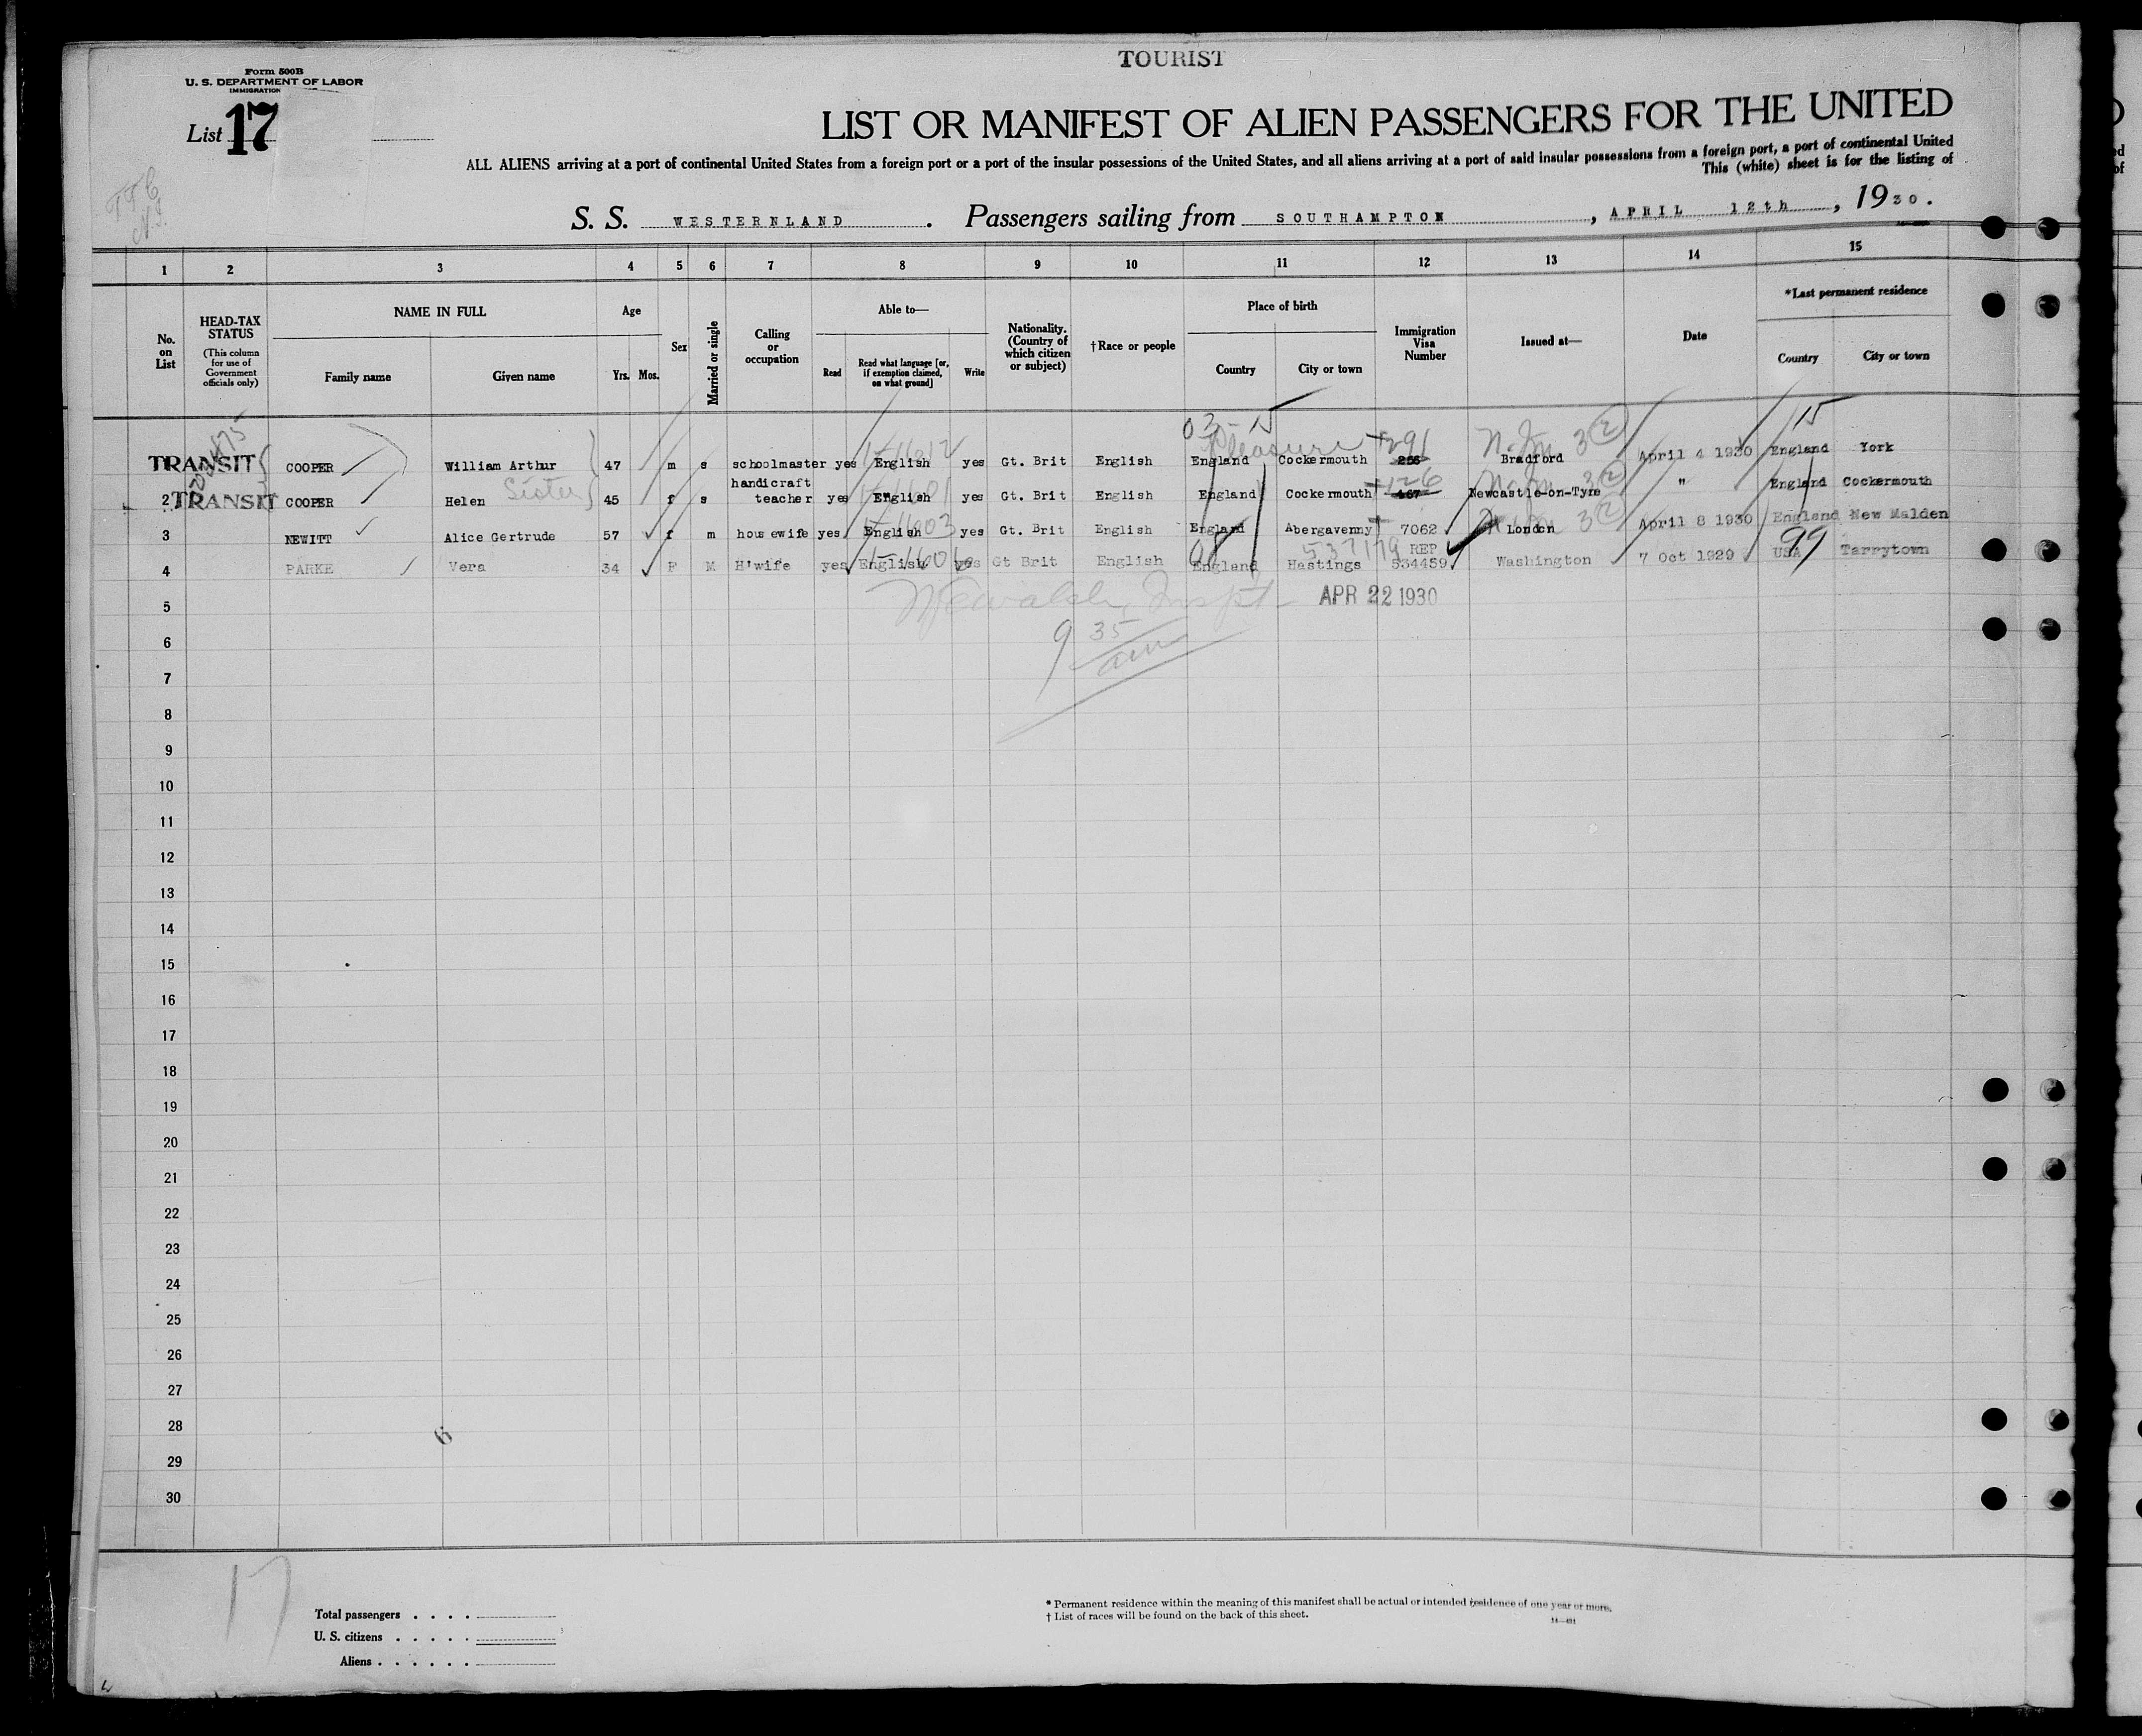 TOURIST
Form 500B
U. S. DEPARTMENT OF LABOR
IMMIGRATION
List 17
LIST OR MANIFEST OF ALIEN PASSENGERS FOR THE UNITED
ALL ALIENS arriving at a port of continental United States from a foreign port or a port of the insular possessions of the United States, and all aliens arriving at a port of said insular possessions from a foreign port, a port of continental United
This (white) sheet is for the listing of
S. S. WESTERNLAND. Passengers sailing from SOUTHAMPTON, APRIL 12th, 1930.
1 2 3 4 5 6 7 8 9 10 11 12 13 14 15
No. on List
HEAD-TAX STATUS
(This column for use of Government officials only)
NAME IN FULL
Family name Given name
Age
Yrs. Mos.
Sex
Married or single
Calling or occupation
Able to—
Read
Read what language [or, if exemption claimed, on what ground]
Write
Nationality. (Country of which citizen or subject)
†Race or people
Place of birth
Country City or town
Immigration Visa Number
Issued at—
Date
*Last permanent residence
Country City or town
03-15 15
Pleasure
TRANSIT COOPER William Arthur 47 m s schoolmaster yes English yes Gt. Brit English England Cockermouth 291 Bradford April 4 1930 England York
2 TRANSIT COOPER Helen Sister 45 f s handicraft teacher yes English yes Gt. Brit English England Cockermouth 126 467 Newcastle-on-Tyne " England Cockermouth
3 NEWITT Alice Gertrude 57 f m housewife yes English yes Gt. Brit English England Abergavenny 7062 London April 8 1930 England New Malden
4 PARKE Vera 34 F M H'wife yes English yes Gt Brit English England Hastings 537179 REP 534459 Washington 7 Oct 1929 USA 99 Tarrytown
5 APR 22 1930
6 9 35 am
7
8
9
10
11
12
13
14
15
16
17
18
19
20
21
22
23
24
25
26
27
28
29
30
6
17
Total passengers . . . .
U. S. citizens . . . . .
Aliens . . . . . .
* Permanent residence within the meaning of this manifest shall be actual or intended residence of one year or more.
† List of races will be found on the back of this sheet.